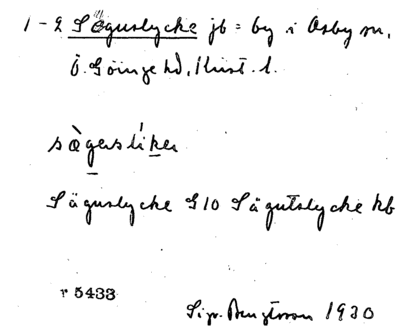 1-2 Säguslycke jb = by i Osby sn,
Ö. Göinge hd, Krist. l.
sǽgerslíker
Säguslycke G10 Sägutslycke kb
r 5433
Sigv. Bengtsson 1930